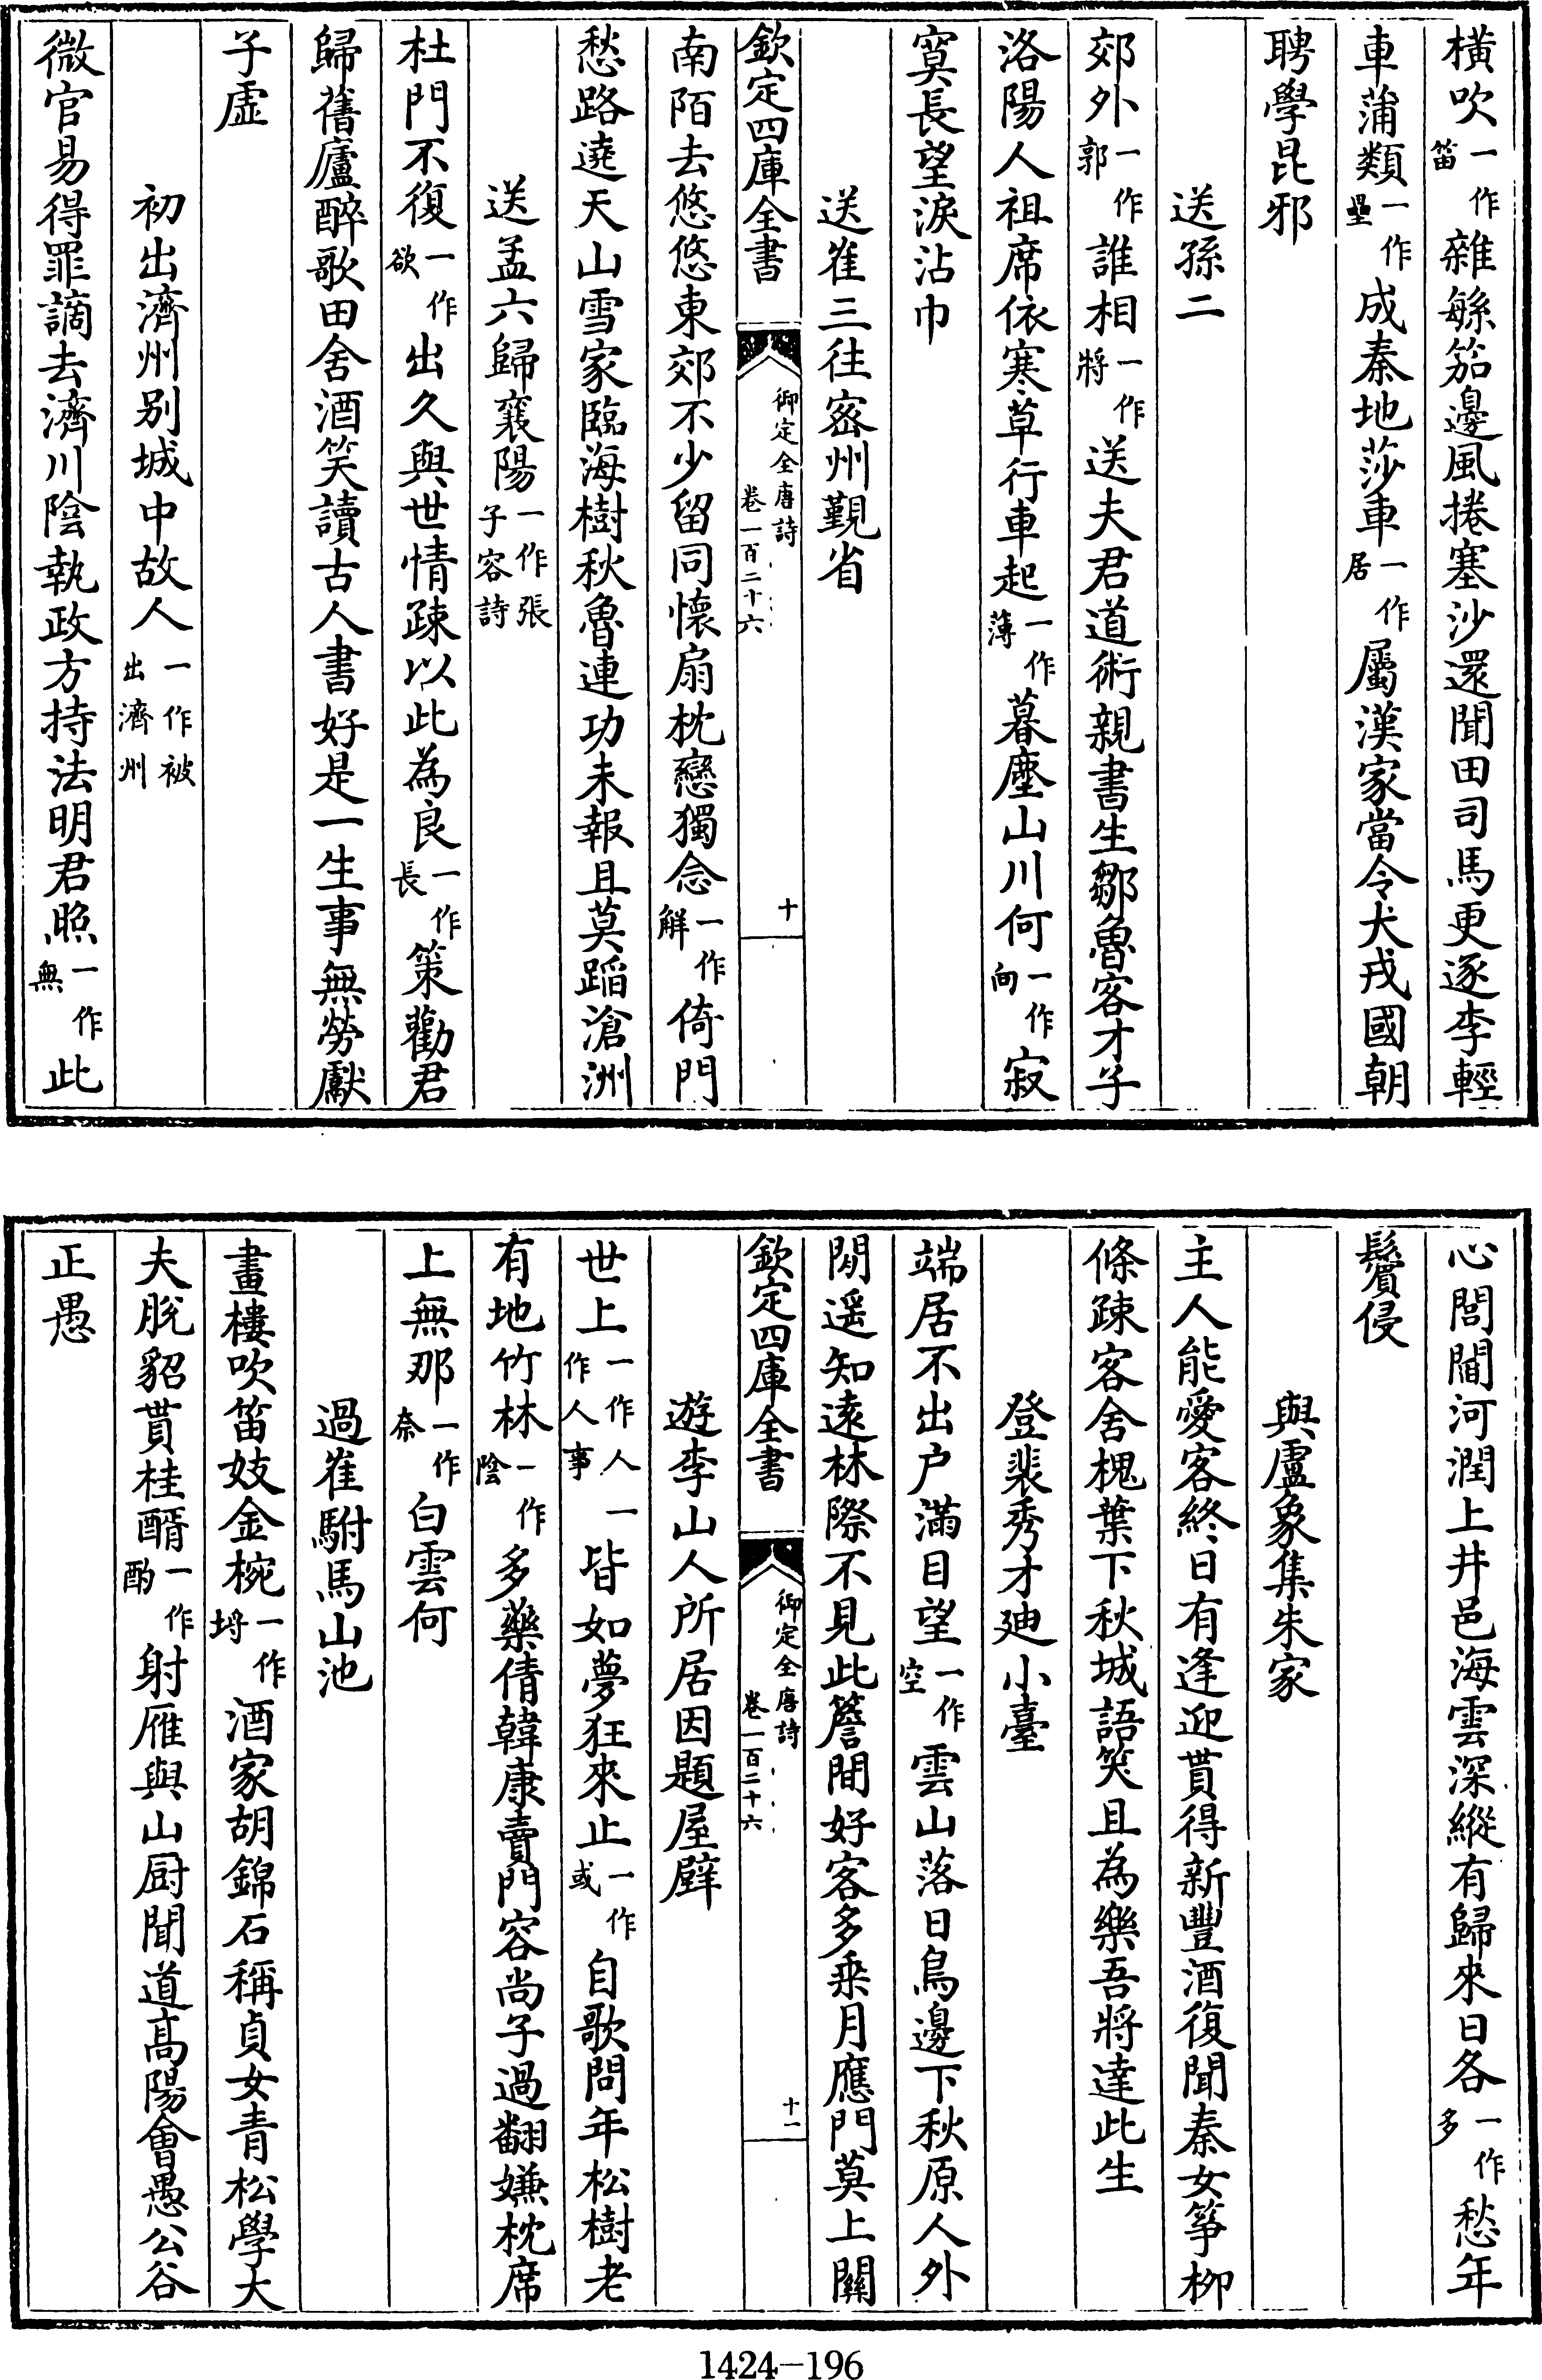 橫吹一作笛雜繇笳邊風捲塞沙還聞田司馬更逐李輕
車蒲類一作壘成秦地莎車一作居屬漢家當令犬戎國朝
聘學昆邪
送孫二
郊外一作郭誰相一作將送夫君道術親書生鄒魯客才子
洛陽人祖席依寒草行車起一作薄暮塵山川何一作向寂
寞長望淚沾巾
送崔三往密州覲省
欽定四庫全書
御定全唐詩
卷一百二十六
十
南陌去悠悠東郊不少留同懷扇枕戀獨念一作解倚門
愁路遶天山雪家臨海樹秋魯連功未報且莫蹈滄洲
送孟六歸襄陽一作張子容詩
杜門不復一作欲出久與世情疎以此為良一作長策勸君
歸舊廬醉歌田舍酒笑讀古人書好是一生事無勞獻
子虛
初出濟州別城中故人一作被出濟州
微官易得罪謫去濟川陰執政方持法明君照一作無此
心閭閻河潤上井邑海雲深縱有歸來日各一作多愁年
鬢侵
與盧象集朱家
主人能愛客終日有逢迎貰得新豐酒復聞秦女箏柳
條疎客舍槐葉下秋城語笑且為樂吾將達此生
登裴秀才迪小臺
端居不出户滿目望一作空雲山落日鳥邊下秋原人外
閒遥知遠林際不見此簷間好客多乗月應門莫上關
欽定四庫全書
御定全唐詩
卷一百二十六
十一
遊李山人所居因題屋壁
世上一作人一作人事皆如夢狂來止一作或自歌問年松樹老
有地竹林一作陰多藥倩韓康賣門容尚子過翻嫌枕席
上無那一作奈白雲何
過崔駙馬山池
畫樓吹笛妓金椀一作埒酒家胡錦石稱貞女青松學大
夫脫貂貰桂醑一作酌射雁與山厨聞道高陽會愚公谷
正愚
1424-196